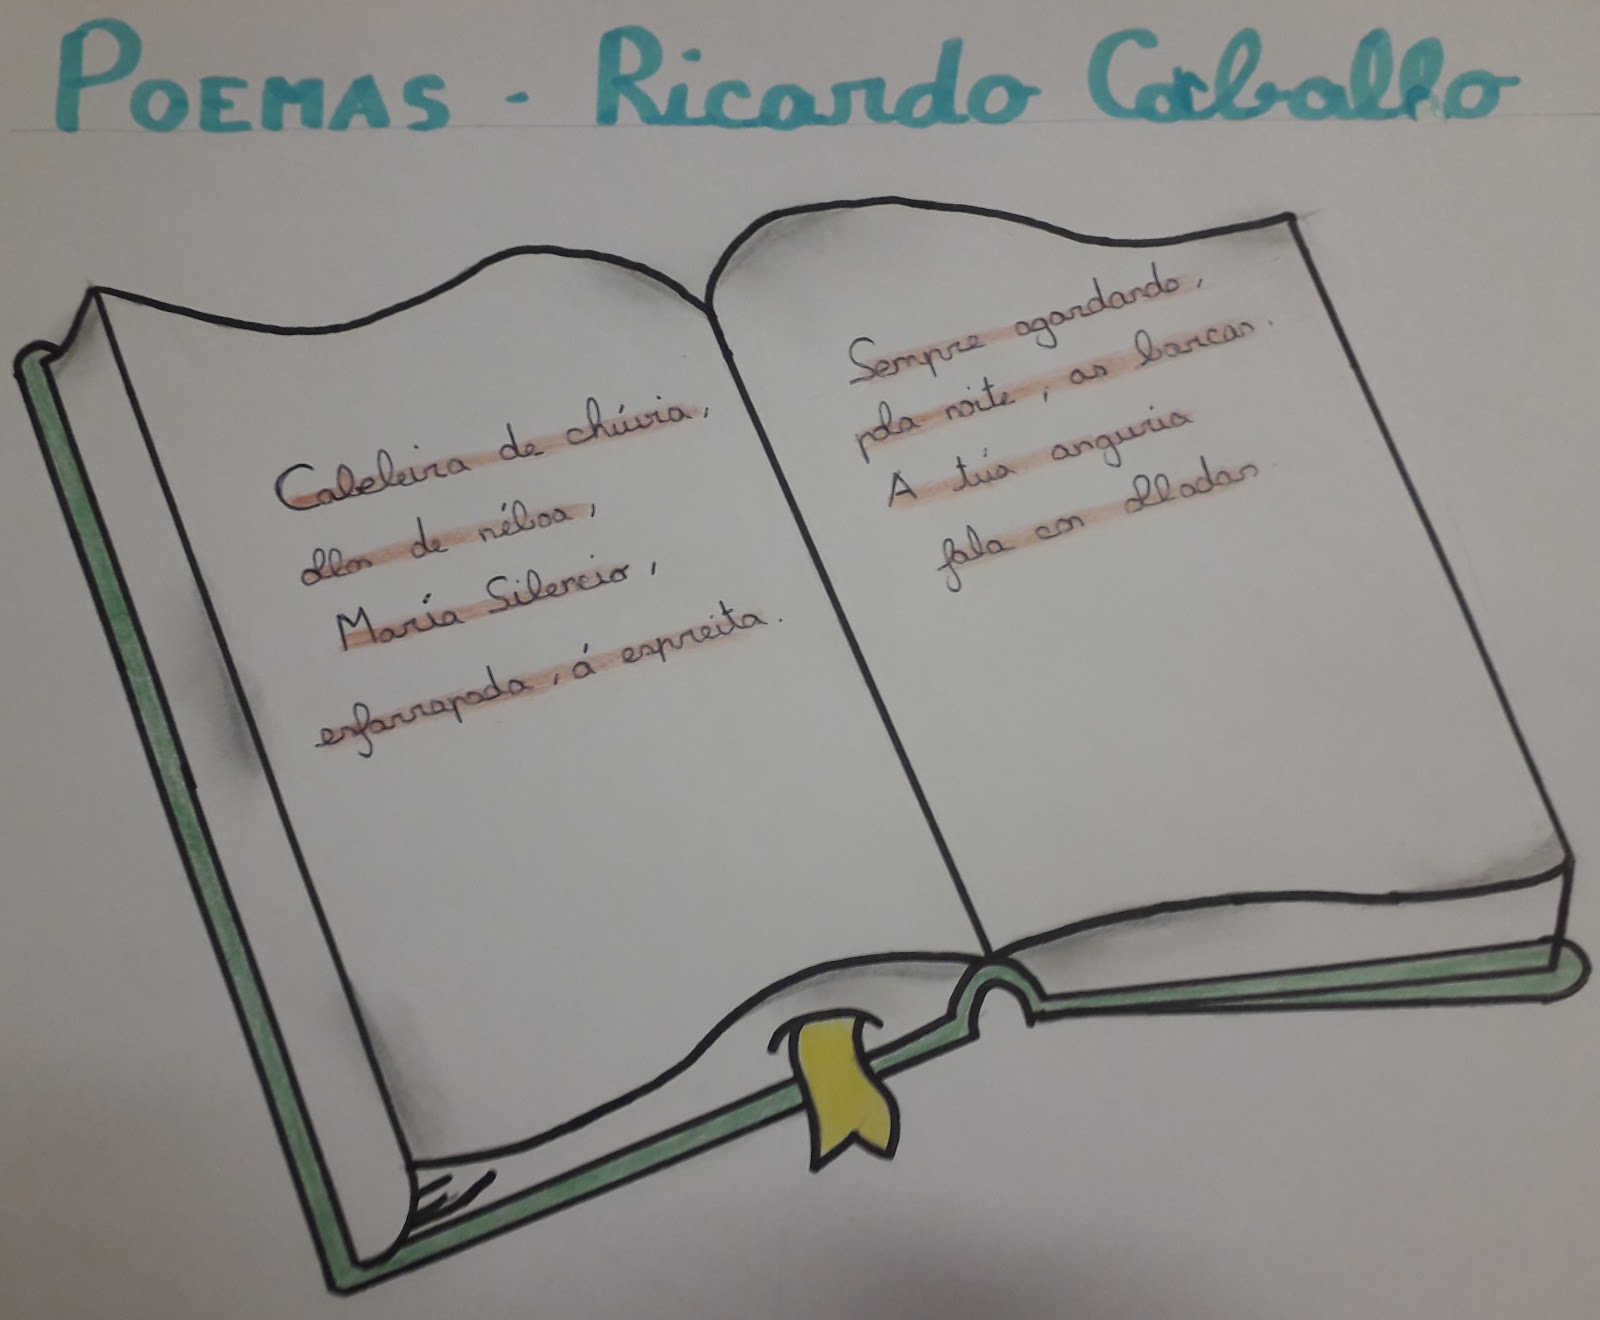 POEMAS - Ricardo Caballo
Cabeleira de chúvia,
ollos de néboa,
María Silencio,
esfarrapada, á espreita.
Sempre agardando,
pola noite, as barcas.
A túa anguria
fala cos olladas